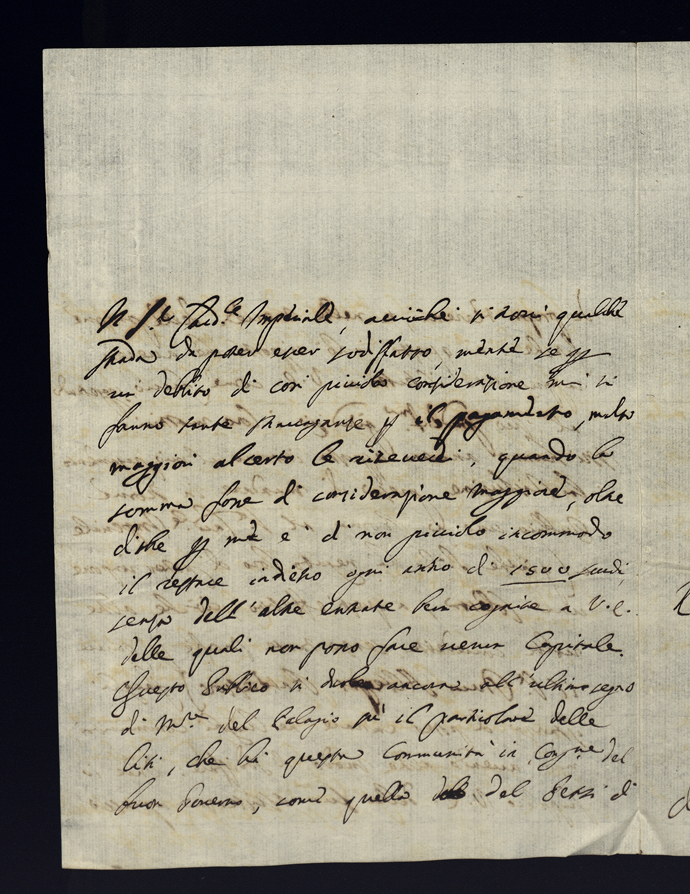 Il S.r Card.le Imperiale, acciòche si trovi qualche
strada da poter esser sodisfatto, mentre se
un debito di così piccola considerazione mi si
fanno tante stravaganze p il pagamento, molto
maggiori al certo le riceverei, quando la
somma fosse di considerazione maggiore, oltre
di che p me e di non piccolo incommodo
il restare indietro ogni anno di 1500 scudi
senza dell'altre entrate ben cognite a V.E.
delle quali non posso fare verun Capitale.
Questo Publico si duole ancora all'ultimo segno
di M.r del Palagio p il particolare delle
liti, che hà questa Communità in Cong.ne del
buon Governo, come quella del Pezzi di